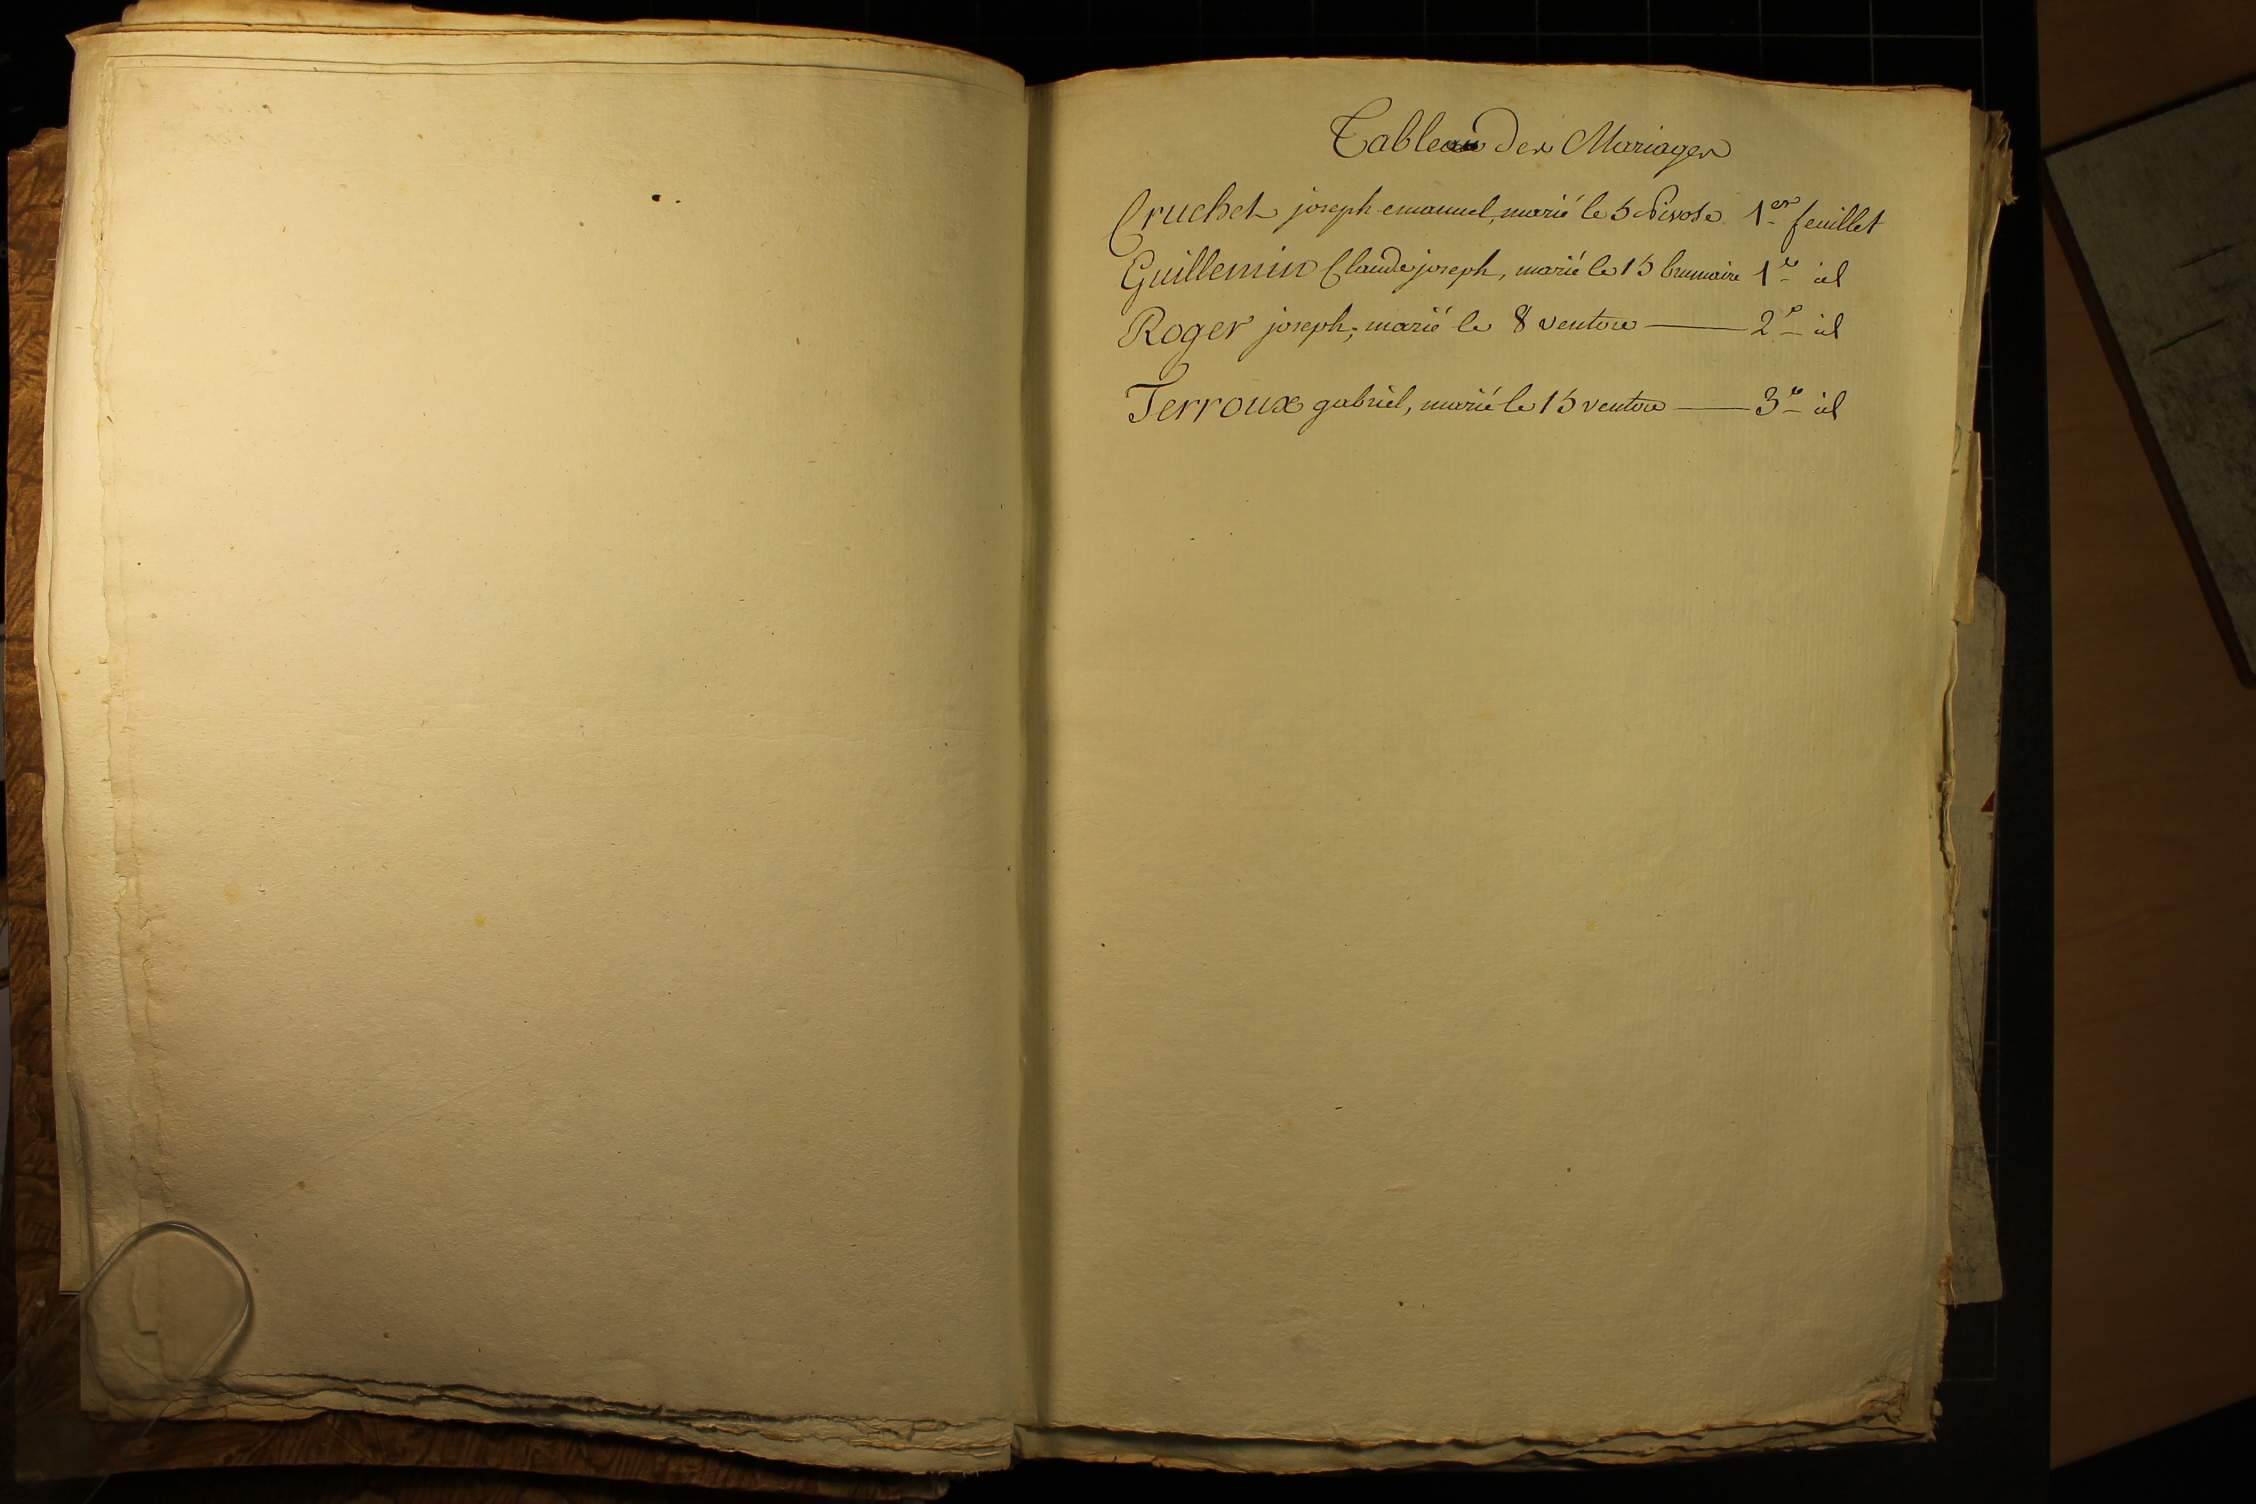 Tableau des Mariages
Cruchet joseph emanuel, marié le 5 Nivose 1er feuillet
Guillemin Claude joseph, marié le 15 brumaire 1er id
Roger joseph, marié le 8 ventose — 2e id
Terroux gabriel, marié le 15 ventose — 3e id